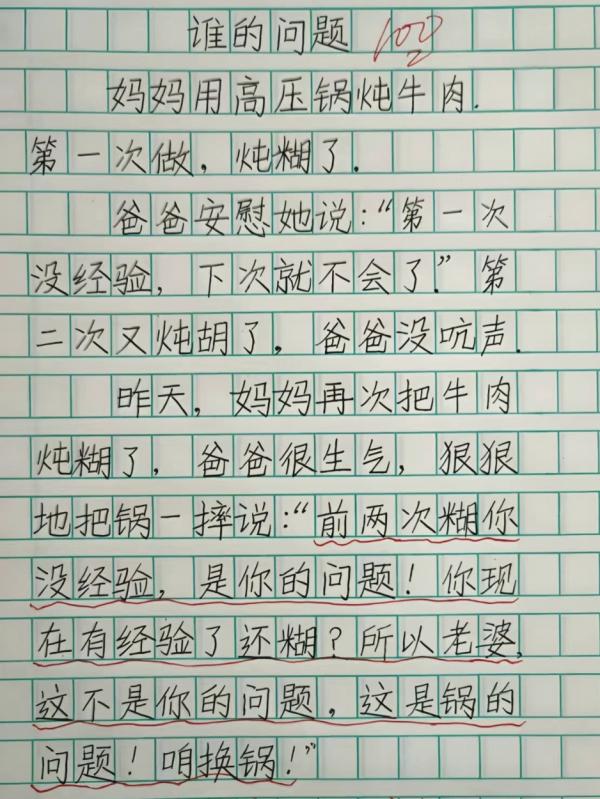 谁的问题 100
妈妈用高压锅炖牛肉.
第一次做，炖糊了.
爸爸安慰她说：“第一次
没经验，下次就不会了.”第
二次又炖胡了，爸爸没吭声.
昨天，妈妈再次把牛肉
炖糊了，爸爸很生气，狠狠
地把锅一摔说：“前两次糊你
没经验，是你的问题！你现
在有经验了还糊？所以老婆，
这不是你的问题，这是锅的
问题！咱换锅！”